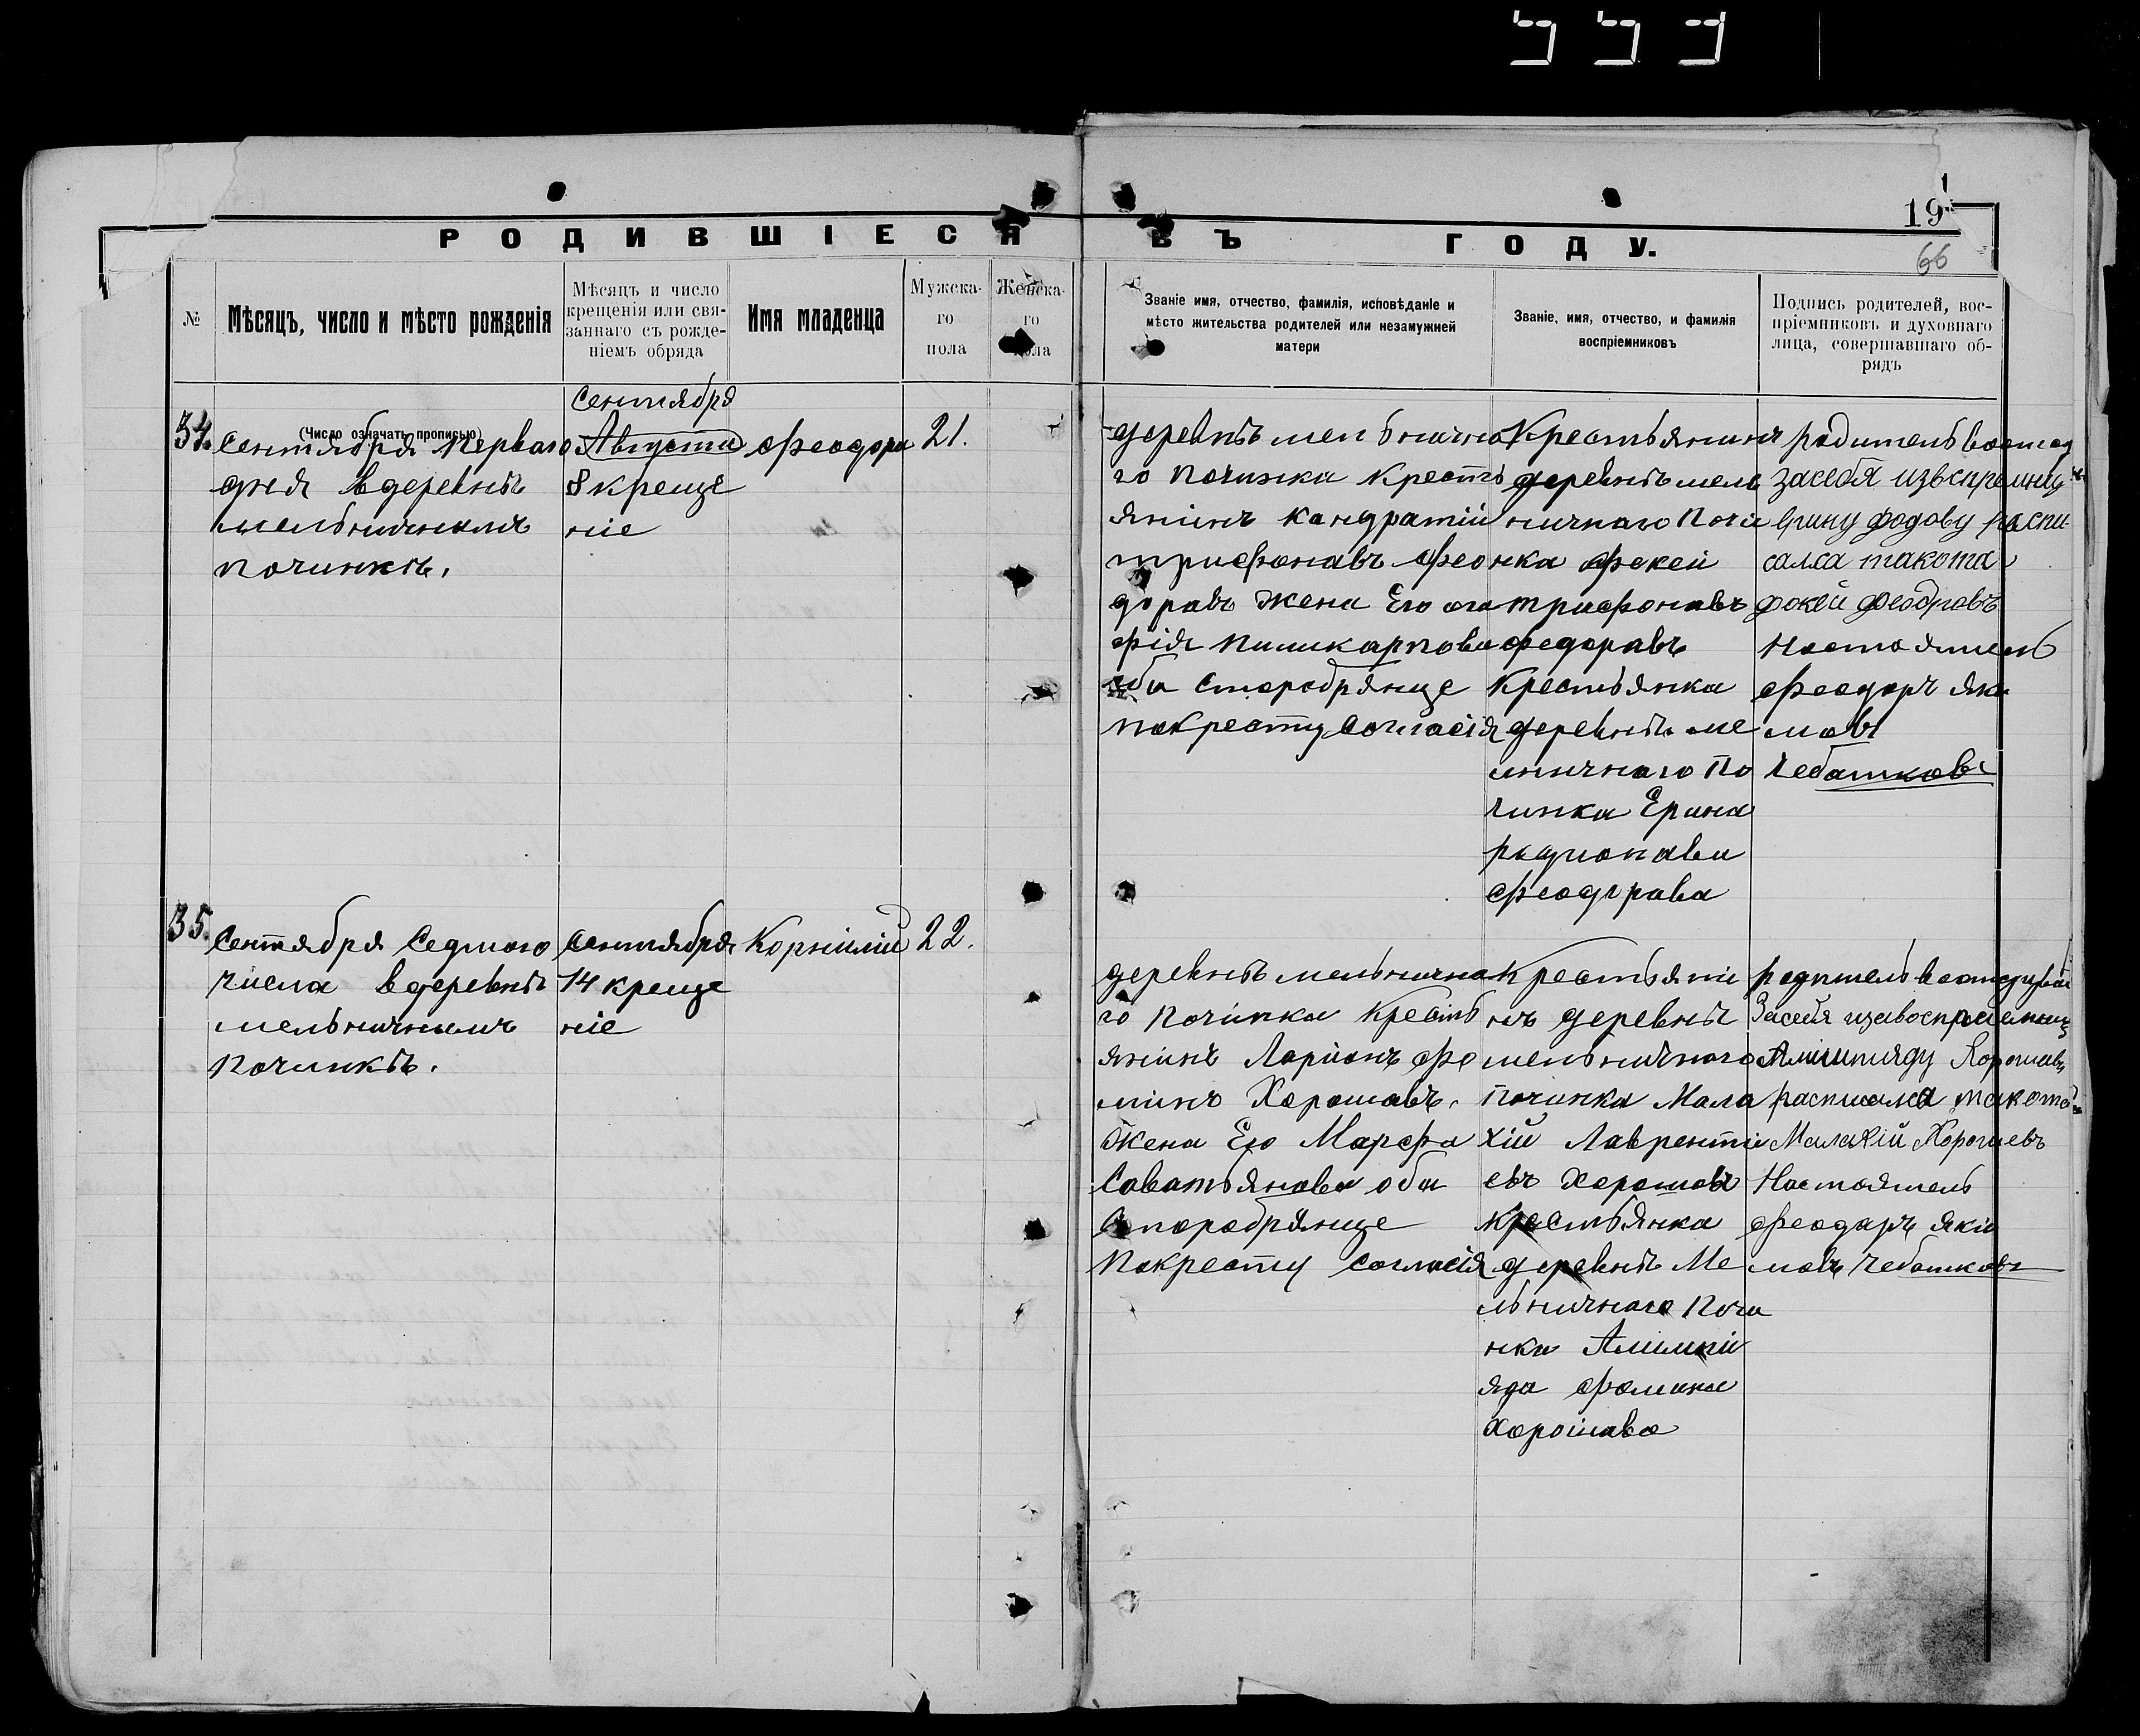 19
66
РОДИВШІЕСЯ ВЪ ГОДУ.
№
Мѣсяцъ, число и мѣсто рожденія
(Число означать прописью)
Мѣсяцъ и число
крещенія или свя-
заннаго съ рожде-
ніемъ обряда
Имя младенца
Мужска-
го
пола
Женска-
го
пола
Званіе имя, отчество, фамилія, исповѣданіе и
мѣсто жительства родителей или незамужней
матери
Званіе, имя, отчество, и фамилія
воспріемниковъ
Подпись родителей, вос-
пріемниковъ и духовнаго
лица, совершавшаго об-
рядъ
34.
Сентября перваго
дня вдеревнѣ
мельничнимъ
починкѣ.
Сентября
Августа
8 креще
ніе
Феодора
21.
деревнѣ мельнично
го починка Кресть
янинъ Кандратій
трифонавъ Фео
доравъ Жена Его ага
фія Пиликарпова
оба старобрянце
покресту согласія
Крестьянинъ
деревнѣ мель
ничнаго Почи
нка Фокей
трифонавъ
Федоравъ
Крестьянка
деревнѣ ме
льничнаго По
чинка Ерина
радионава
Феодрава
родитель
засебя
ерину Фодову распи
салса такота
фокей феодровъ
Настоятель
Феодоръ Яки
мовъ
Чебатковъ
35.
Сентября Седмого
числа вдеревнѣ
мельничнимъ
Починкѣ.
Сентября
14 креще
ніе
Корнилій
22.
деревнѣ мельнична
го Починка Кресть
янинъ Ларионъ Фо
минъ Хорошавъ.
Жена Его Марфа
Саватьянова оба
Старобрянце
Покресту согласія
Крестьяни
нъ деревнѣ
мельничнаго
починка Мала
хій Лавренти
евъ Хорошавъ
крестьянка
деревнѣ Ме
льничнаго Почи
нка Алимпи
яда Фомина
Хорошава
родитель
Засебя
Алимпияду Хорошаву
расписалса такота
Малахій Хорошевъ
Настоятель
Феодаръ Яки
мовъ Чебатковъ